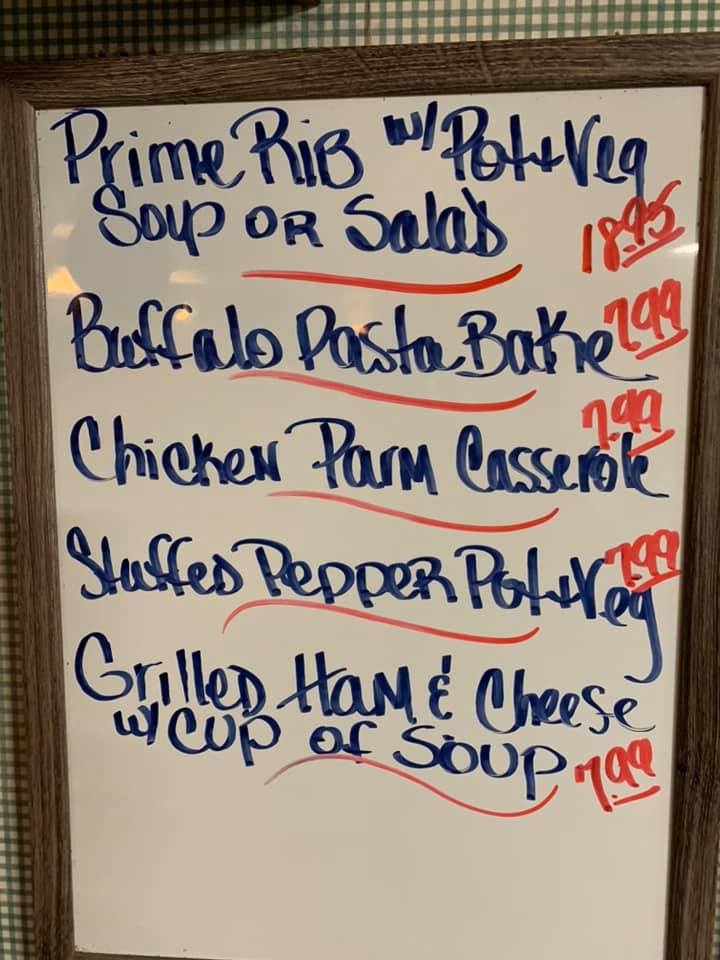 Prime Rib w/ Pot + Veg
Soup or Salad 18.95
Buffalo Pasta Bake 7.99
Chicken Parm Casserole 7.99
Stuffed Pepper Pot + Veg 7.99
Grilled Ham & Cheese
w/ Cup of Soup 7.99